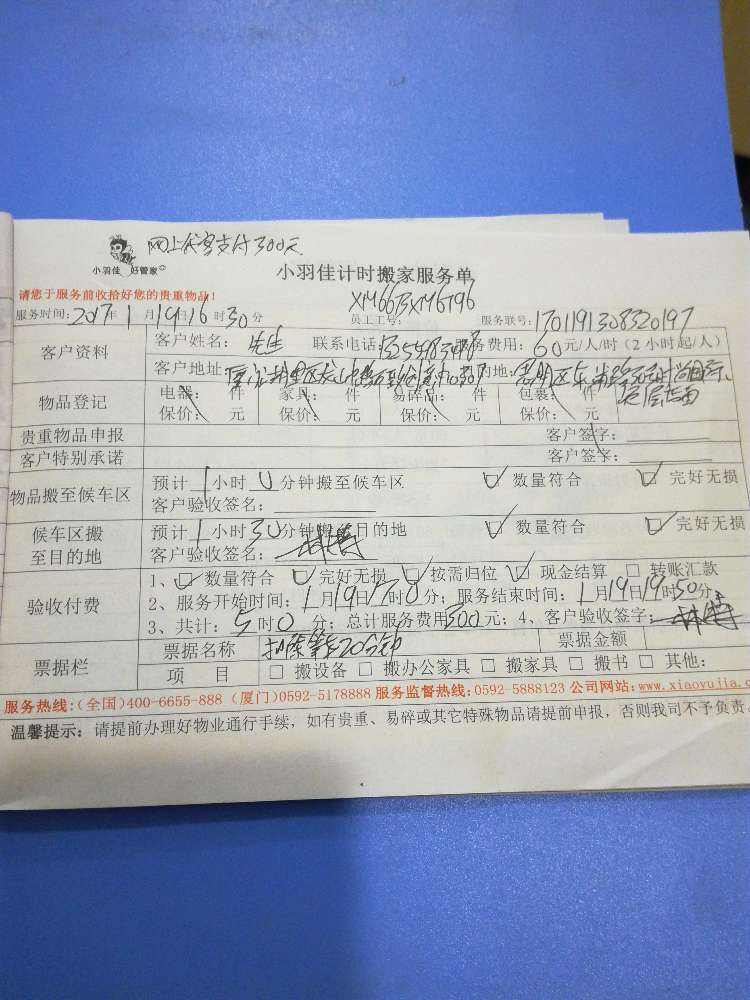 网上代客支付300元
小羽佳 好管家
小羽佳计时搬家服务单
请您于服务前收拾好您的贵重物品！
XM66BXM6796
服务时间：2017年1月19日16时30分 员工工号： 服务联号：1701191308320197
客户资料
客户姓名：先生 联系电话： 服务费用：60元/人/时（2小时起/人）
客户地址：
物品登记
电器： 件 家具： 件 易碎品： 件 包裹： 件
保价： 元 保价： 元 保价： 元 保价： 元
贵重物品申报 客户签字：
客户特别承诺 客户签字：
物品搬至候车区
预计1小时0分钟搬至候车区 ☑数量符合 ☑完好无损
客户验收签名：
候车区搬至目的地
预计1小时30分钟搬至目的地 ☑数量符合 ☑完好无损
客户验收签名：
验收付费
1、☑数量符合 ☑完好无损 ☑按需归位 ☑现金结算 □转账汇款
2、服务开始时间：1月19日17时0分；服务结束时间：1月19日19时50分；
3、共计：5时0分；总计服务费用300元；4、客户验收签字：
票据栏
票据名称 扣除等车20分钟 票据金额
项 目 □搬设备 □搬办公家具 □搬家具 □搬书 □其他：
服务热线：(全国)400-6655-888 (厦门)0592-5178888 服务监督热线：0592-5888123 公司网站：www.xiaoyujia.c
温馨提示：请提前办理好物业通行手续，如有贵重、易碎或其它特殊物品请提前申报，否则我司不予负责。